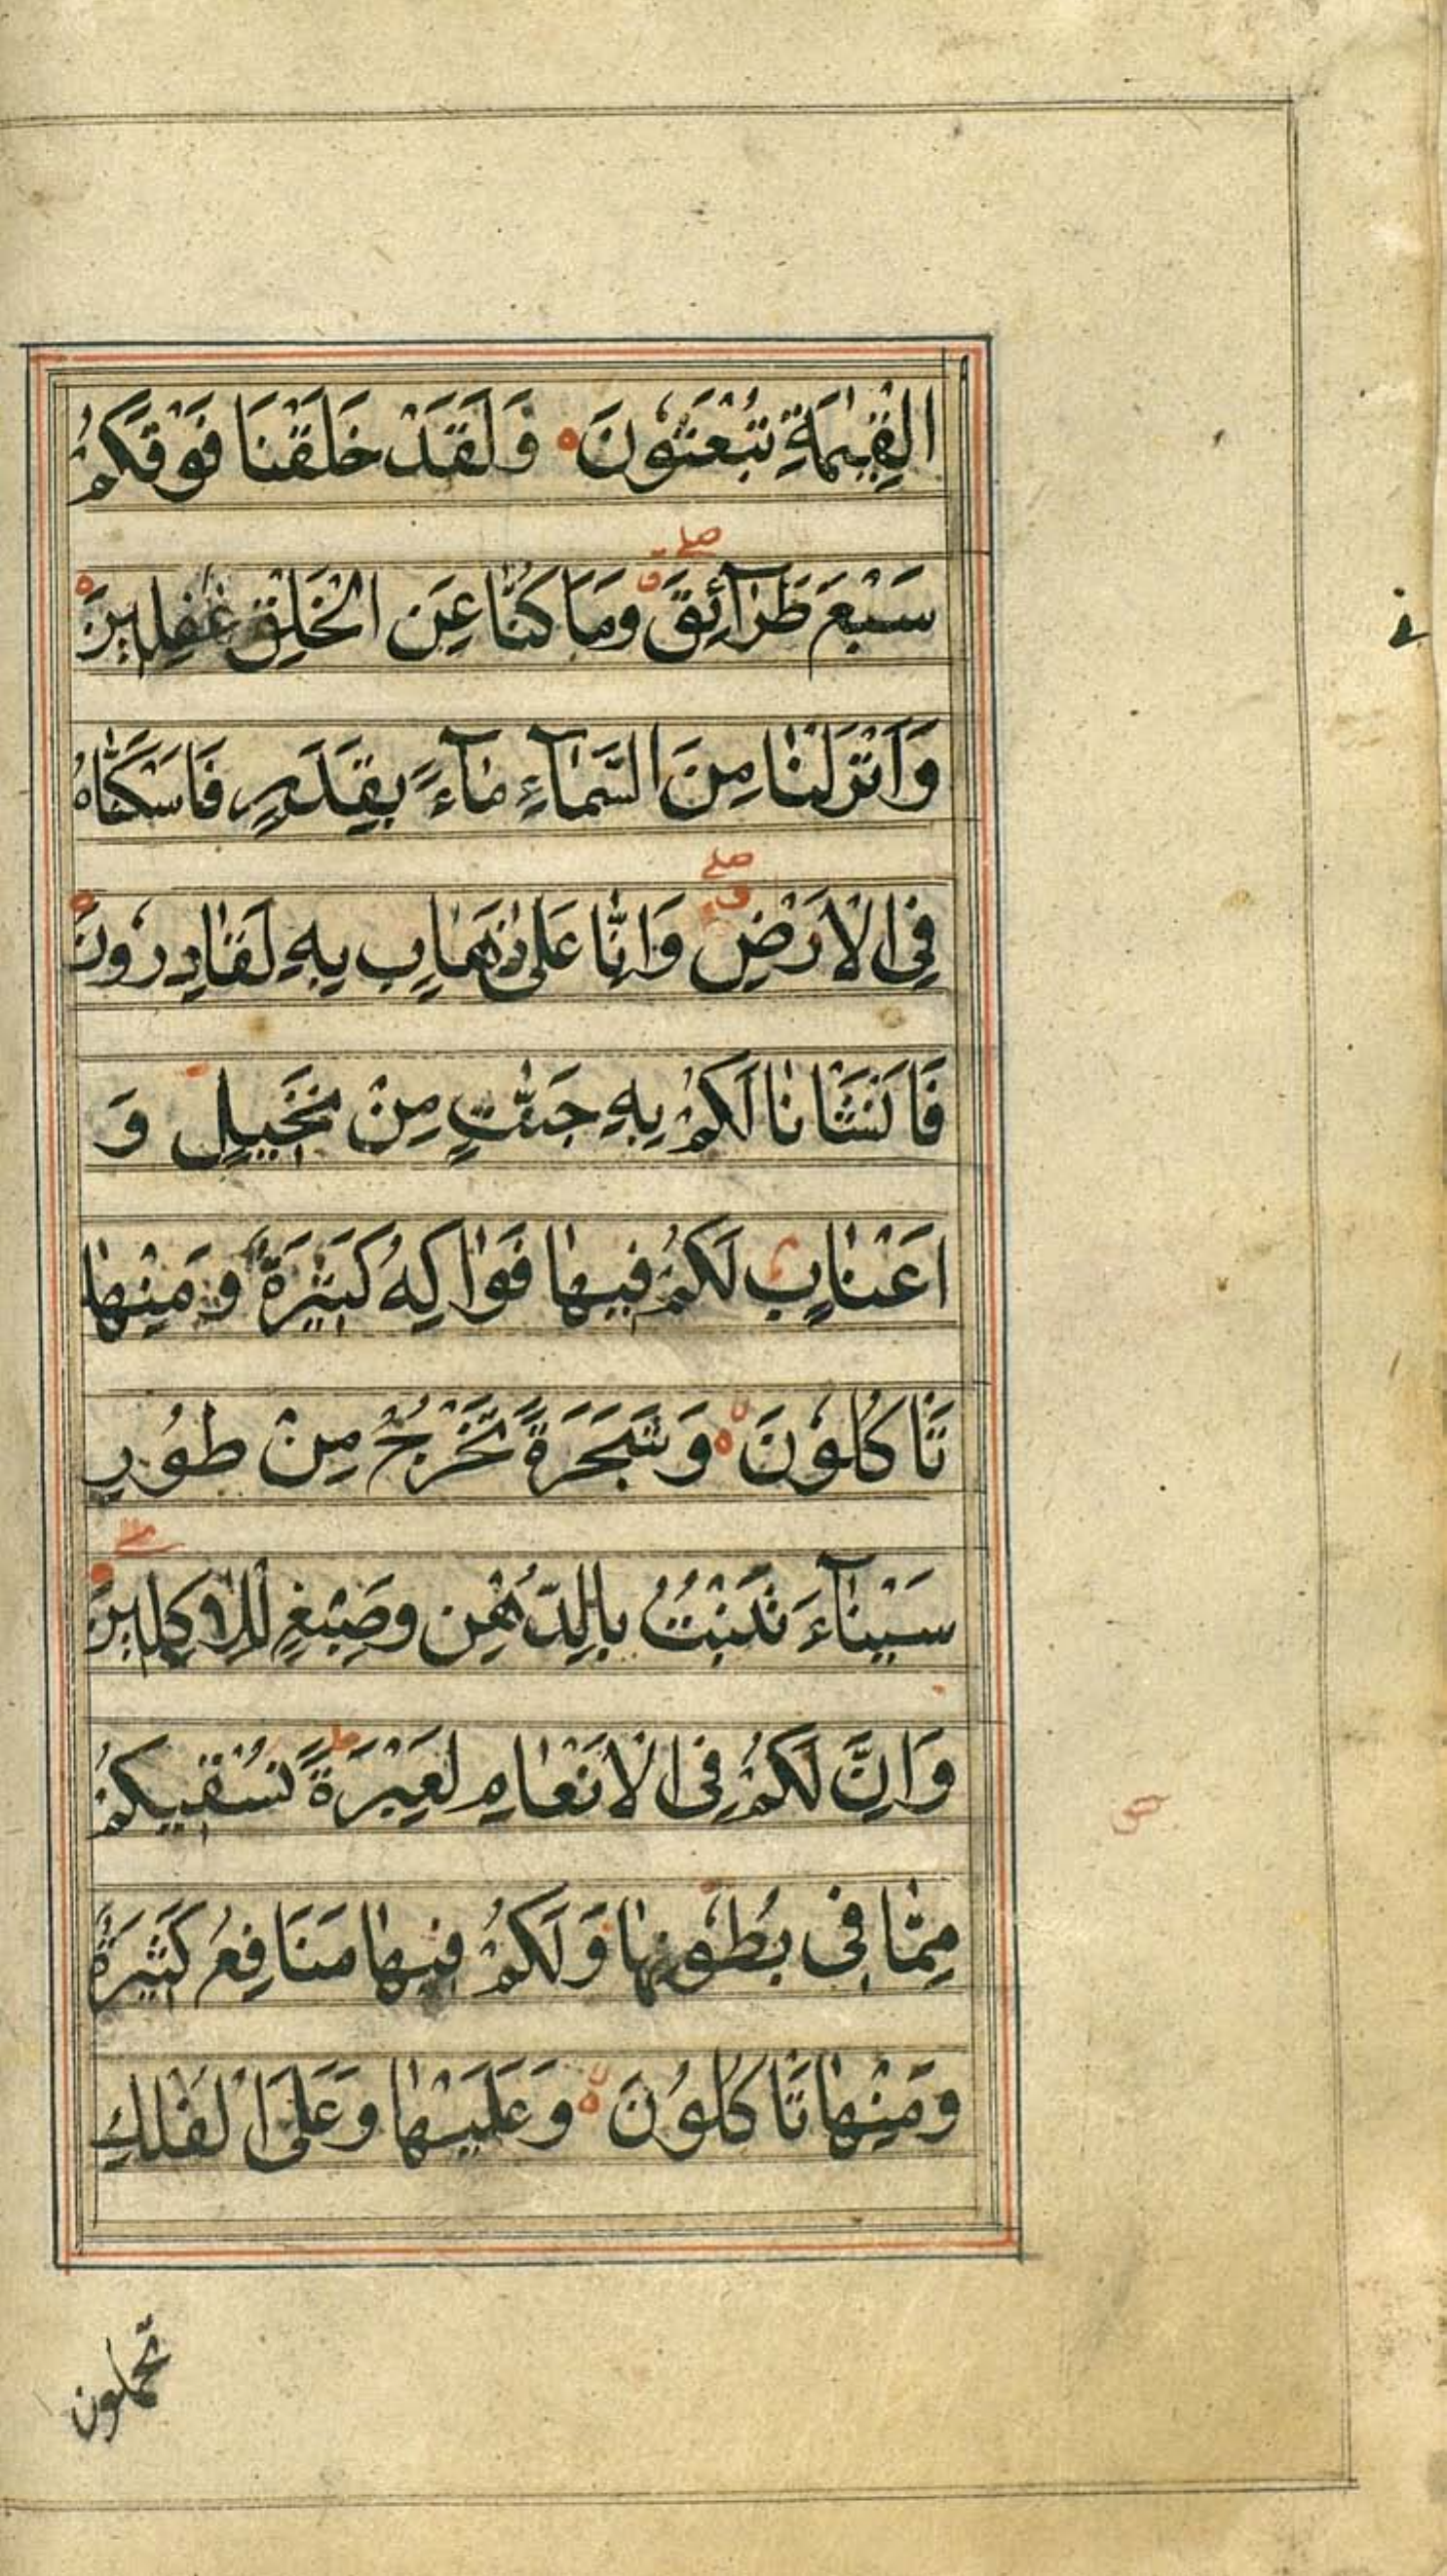 الْقِيٰمَةِ تُبْعَثُوْنَ ٥ وَلَقَدْ خَلَقْنَا فَوْقَكُمْ
صلے
سَبْعَ طَرَآئِقَ ق وَمَا كُنَّا عَنِ الْخَلْقِ غٰفِلِيْنَ ٥
وَاَنْزَلْنَا مِنَ السَّمَآءِ مَآءً بِقَدَرٍ فَاَسْكَنَّاهُ
صلے
فِي الْاَرْضِ ق وَاِنَّا عَلٰى ذَهَابٍ بِهٖ لَقَادِرُوْنَ ٥
فَاَنْشَاْنَا لَكُمْ بِهٖ جَنّٰتٍ مِنْ نَخِيْلٍ وَ
اَعْنَابٍ م لَكُمْ فِيْهَا فَوَاكِهُ كَثِيْرَةٌ وَمِنْهَا
تَاْكُلُوْنَ لا ٥ وَشَجَرَةً تَخْرُجُ مِنْ طُوْرِ
سَيْنَآءَ تَنْبُتُ بِالدُّهْنِ وَصِبْغٍ لِلْاٰكِلِيْنَ
وَاِنَّ لَكُمْ فِي الْاَنْعَامِ لَعِبْرَةً ط نُسْقِيْكُمْ
مِمَّا فِيْ بُطُوْنِهَا وَلَكُمْ فِيْهَا مَنَافِعُ كَثِيْرَةٌ
وَمِنْهَا تَاْكُلُوْنَ لا ٥ وَعَلَيْهَا وَعَلَى الْفُلْكِ
تحملون